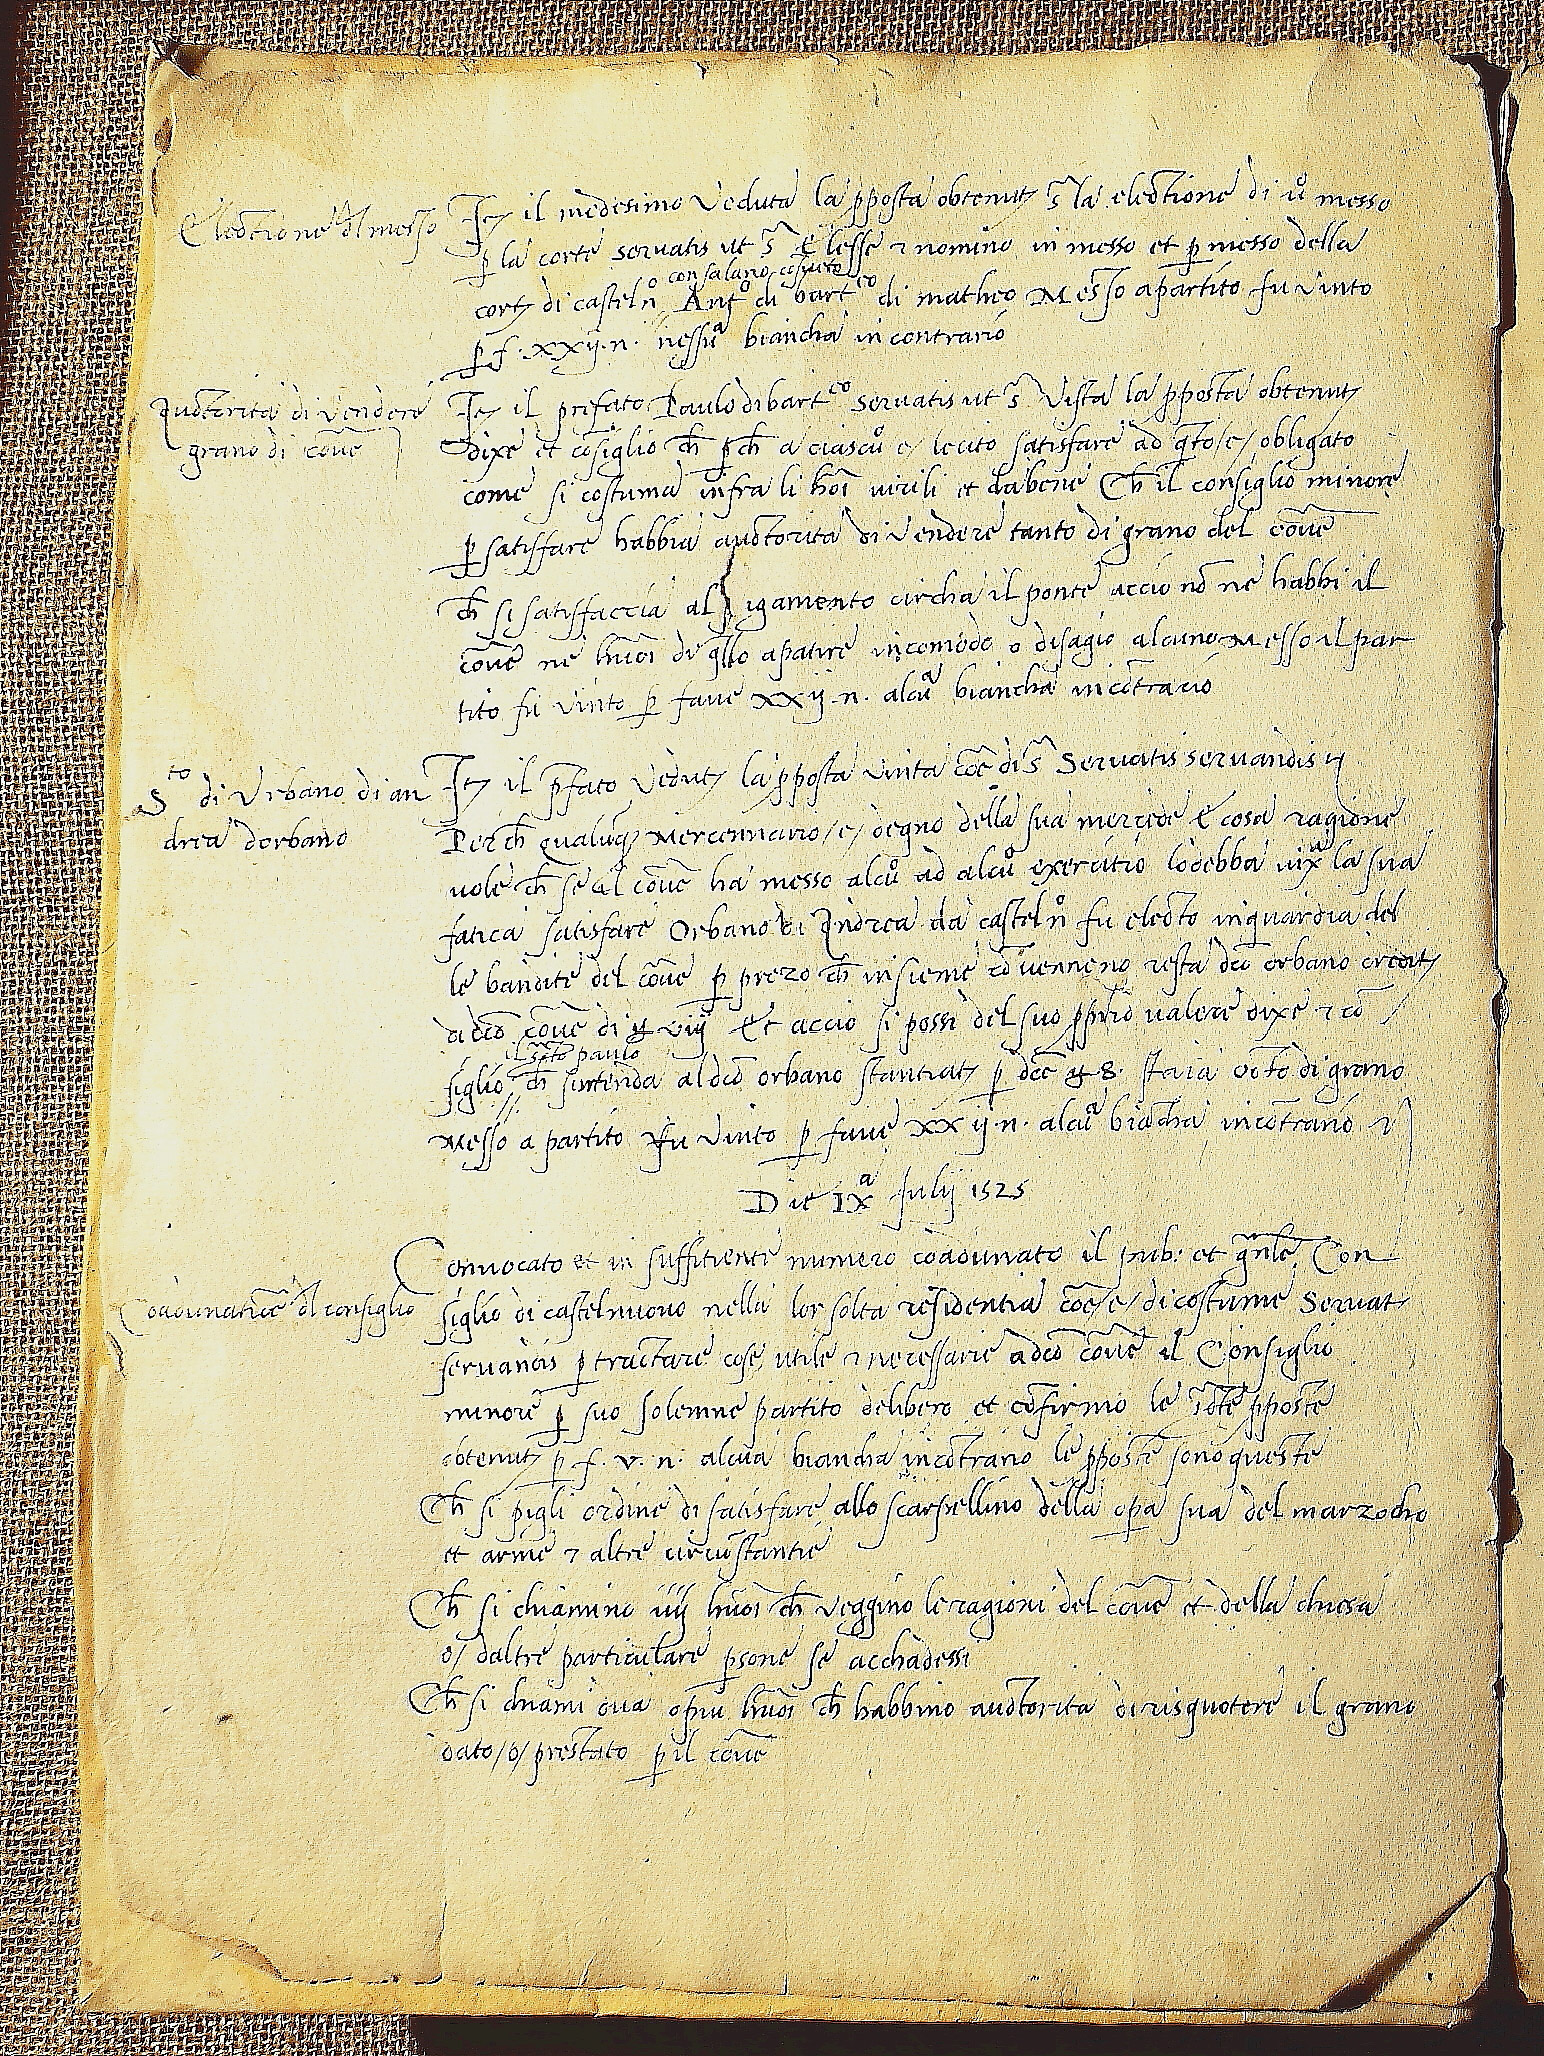 Electione dl messo
Itȝ il medesimo veduta la pposta obtenutȝ s̄ la electione di ůo messo
p̱ la corte servatis ut s̄ Elesse ⁊ nomino in messo et p̱ messo della
con salario cosueto
cortȝ di castelnº Antº di bartᶜᵒ di matheo Messo apartito fu vinto
p̱ f. xxij. n. nessūa biancha in contrario
Auctorita di vendere
grano di cōue
Itȝ il prefato Paulo di bartᶜᵒ servatis ut s̄ Vista la pposta obtenutȝ
dixe et cōsiglio ch̄ p̱ch̄ a ciascůo /e/ lecito satisfare ad q̄to /e/ obligato
come si costuma infra li hōi virili et dabene Ch̄ il consiglio minore
p̱ satisfare habbia auctorita di vendere tanto di grano del cōue
ch̄ si satisfaccia al igamento circha il ponte accio nō ne habbi il
cōue ne huōi de q̄llo apatire incomodo o disagio alcuno Messo il par
tito fu vinto p̱ fave xxij. n. alcūa biancha incōtrario
Sᵗᵒ di Urbano di an
drea dorbano
Itȝ il p̄fato vedutȝ la pposta vinta cōe di s̄ Servatis servandis ij
Perch̄ qualunqȝ mercennario /e/ degno della sua mercede E cosa ragione
vole ch̄ se il cōue ha messo alcůo ad alcůo exercitio lo debba vixª la sua
fatica satisfare Orbano di Andrea da castelnº fu electo in guardia del
le bandite del cōue p̱ prezo ch̄ insieme cōvenneno resta dcō orbano creditȝ
a dcō cōue di viij Et accio si possi del suo pprio valere dixe ⁊ cō
il s̄cto paulo
siglio ch̄ sintenda al dcō orbano stantiatȝ p̱ dcē 8. staia octo di grano
Messo a partito fu vinto p̱ fave xxij. n. alcūa biācha incōtrario
Die IXª Julij 1525
Convocato et in suffitiente numero coadunato il pub: et gn̄le Con
Coadunatiōe dl consiglio
siglio di castelnuovo nella lor solita residentia cōe /e/ di costume Servatȝ
servandis p̱ tractare cose utile ⁊ necessarie a dcō cōue il Consiglio
minore p̱ suo solemne partito delibero et cōfirmo le s̄cte pposte
obtenutȝ p̱ f. v. n. alcūa biancha incōtrario le pposte sono queste
Ch̄ si pigli ordine di satisfare allo scarpellino della op̱a sua del marzocho
et arme ⁊ altre circūstantie
Ch̄ si chiamino iiij huōi ch̄ veggino le ragioni del cōue et della chiesa
o/ daltre particulare p̱sone se acchadessi
Ch̄ si chiami o piu huōi ch̄ habbino auctorita di risquotere il grano
dato /o/ prestato p̱ il cōue